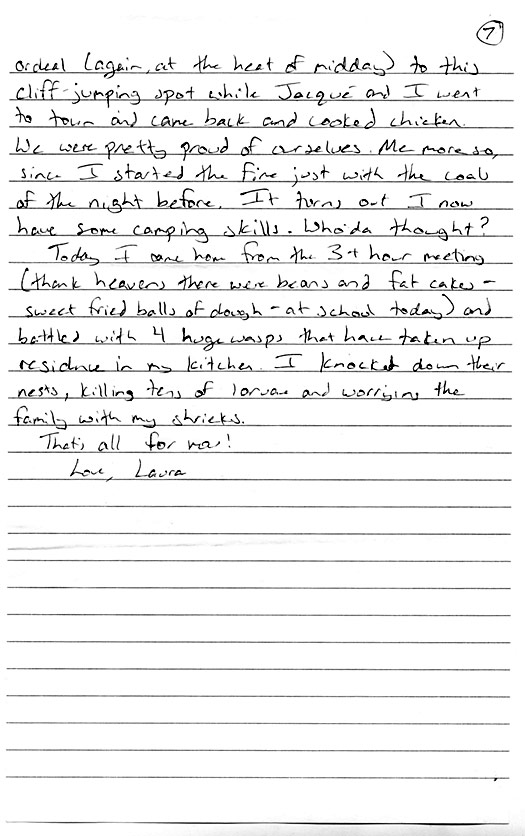 7
ordeal (again, at the heat of midday) to this
cliff-jumping spot while Jacqué and I went
to town and came back and cooked chicken.
We were pretty proud of ourselves. Me more so,
since I started the fire just with the coals
of the night before. It turns out I now
have some camping skills. Who'da thought?
Today I came home from the 3+ hour meeting
(thank heavens there were beans and fat cakes -
sweet fried balls of dough - at school today) and
battled with 4 huge wasps that have taken up
residence in my kitchen. I knocked down their
nests, killing tens of larvae and worrying the
family with my shrieks.
That's all for now!
Love, Laura